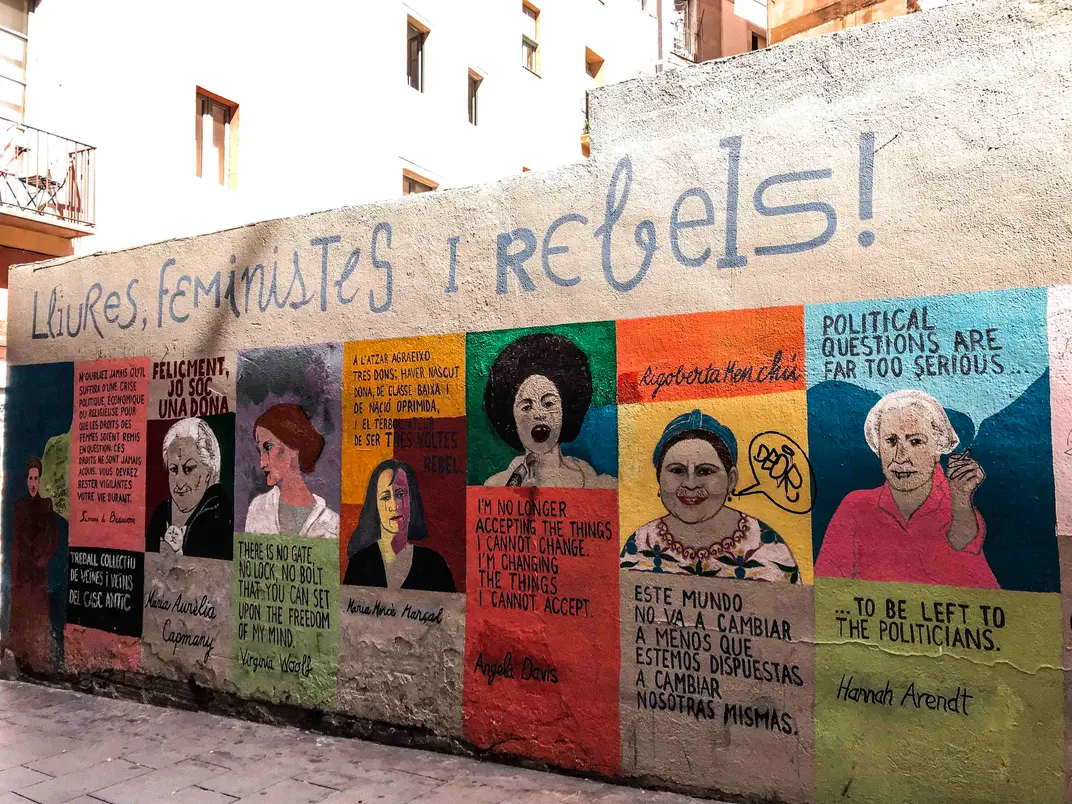 LLIURES, FEMINISTES I REBELS!
N'OUBLIEZ JAMAIS QU'IL
SUFFIRA D'UNE CRISE
POLITIQUE, ÉCONOMIQUE
OU RELIGIEUSE POUR
QUE LES DROITS DES
FEMMES SOIENT REMIS
EN QUESTION. CES
DROITS NE SONT JAMAIS
ACQUIS. VOUS DEVREZ
RESTER VIGILANTES
VOTRE VIE DURANT.
Simone de Beauvoir
TREBALL COL·LECTIU
DE VEÏNES I VEÏNS
DEL CASC ANTIC
FELIÇMENT,
JO SÓC
UNA DONA
Maria Aurèlia
Capmany
THERE IS NO GATE,
NO LOCK, NO BOLT
THAT YOU CAN SET
UPON THE FREEDOM
OF MY MIND.
Virginia Woolf
A L'ATZAR AGRAEIXO
TRES DONS: HAVER NASCUT
DONA, DE CLASSE BAIXA I
DE NACIÓ OPRIMIDA,
I EL TÈRBOL ATZUR
DE SER TRES VOLTES
REBEL.
Maria Mercè Marçal
I'M NO LONGER
ACCEPTING THE THINGS
I CANNOT CHANGE.
I'M CHANGING
THE THINGS
I CANNOT ACCEPT.
Angela Davis
Rigoberta Menchú
ESTE MUNDO
NO VA A CAMBIAR
A MENOS QUE
ESTEMOS DISPUESTAS
A CAMBIAR
NOSOTRAS MISMAS.
POLITICAL
QUESTIONS ARE
FAR TOO SERIOUS...
...TO BE LEFT TO
THE POLITICIANS.
Hannah Arendt